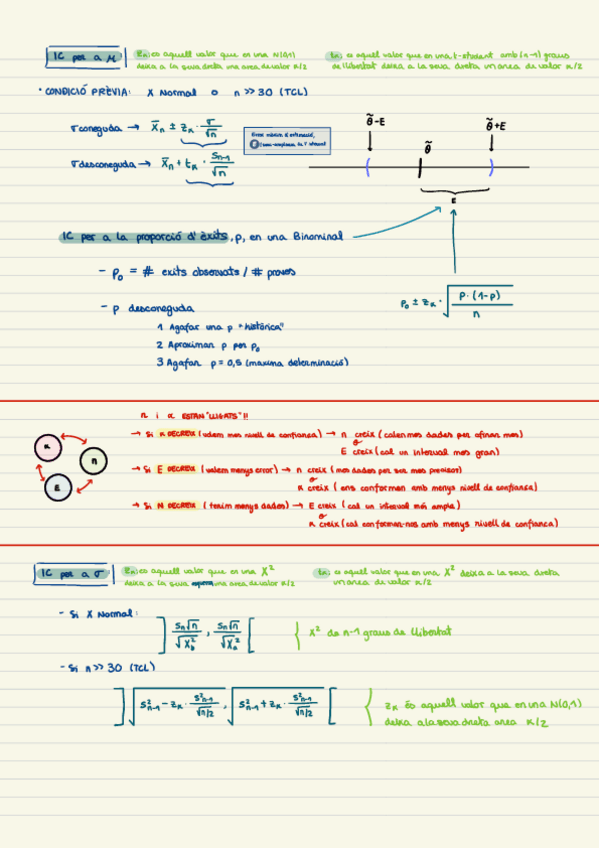 IC per a μ
Zα és aquell valor que en una N(0,1)
deixa a la seva dreta una area de valor α/2
tα és aquell valor que en una t-student amb (n-1) graus
de llibertat deixa a la seva dreta un area de valor α/2
· CONDICIÓ PRÈVIA: X Normal o n >> 30 (TCL)
σ coneguda → X̄n ± zα · σ/√n
σ desconeguda → X̄n + tα · Sn-1/√n
θ̃-E
θ̃
θ̃+E
E
IC per a la proporció d'èxits, p, en una Binominal
- p₀ = # exits observats / # proves
p₀ ± zα · √(p·(1-p)/n)
- p desconeguda
1 Agafar una p "històrica"
2 Aproximar p per p₀
3 Agafar p = 0,5 (maxima determinació)
n i α ESTAN "LLIGATS"!!
α
n
E
→ Si α DECREIX (volem mes nivell de confiança) → n creix (calen mes dades per afinar mes)
o
E creix (cal un interval mes gran)
→ Si E DECREIX (volem menys error) → n creix (mes dades per ser mes precisos)
o
α creix (ens conformem amb menys nivell de confiança)
→ Si N DECREIX (tenim menys dades) → E creix (cal un interval més ampla)
o
α creix (cal conformar-nos amb menys nivell de confiança)
IC per a σ
és aquell valor que en una X²
deixa a la seva una area de valor α/2
és aquell valor que en una X² deixa a la seva dreta
un area de valor α/2
- Si X Normal:
] Sn√n/√X²b , Sn√n/√X²a [
X² de n-1 graus de llibertat
- Si n >> 30 (TCL)
] √(S²n-1 - zα · S²n-1/√n/2) , √(S²n-1 + zα · S²n-1/√n/2) [
zα és aquell valor que en una N(0,1)
deixa a la seva dreta area α/2